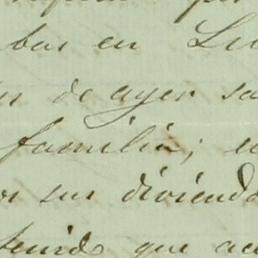 bar en Lu
de ayer sa
familia; e
or sur dividendo
tenido que ac